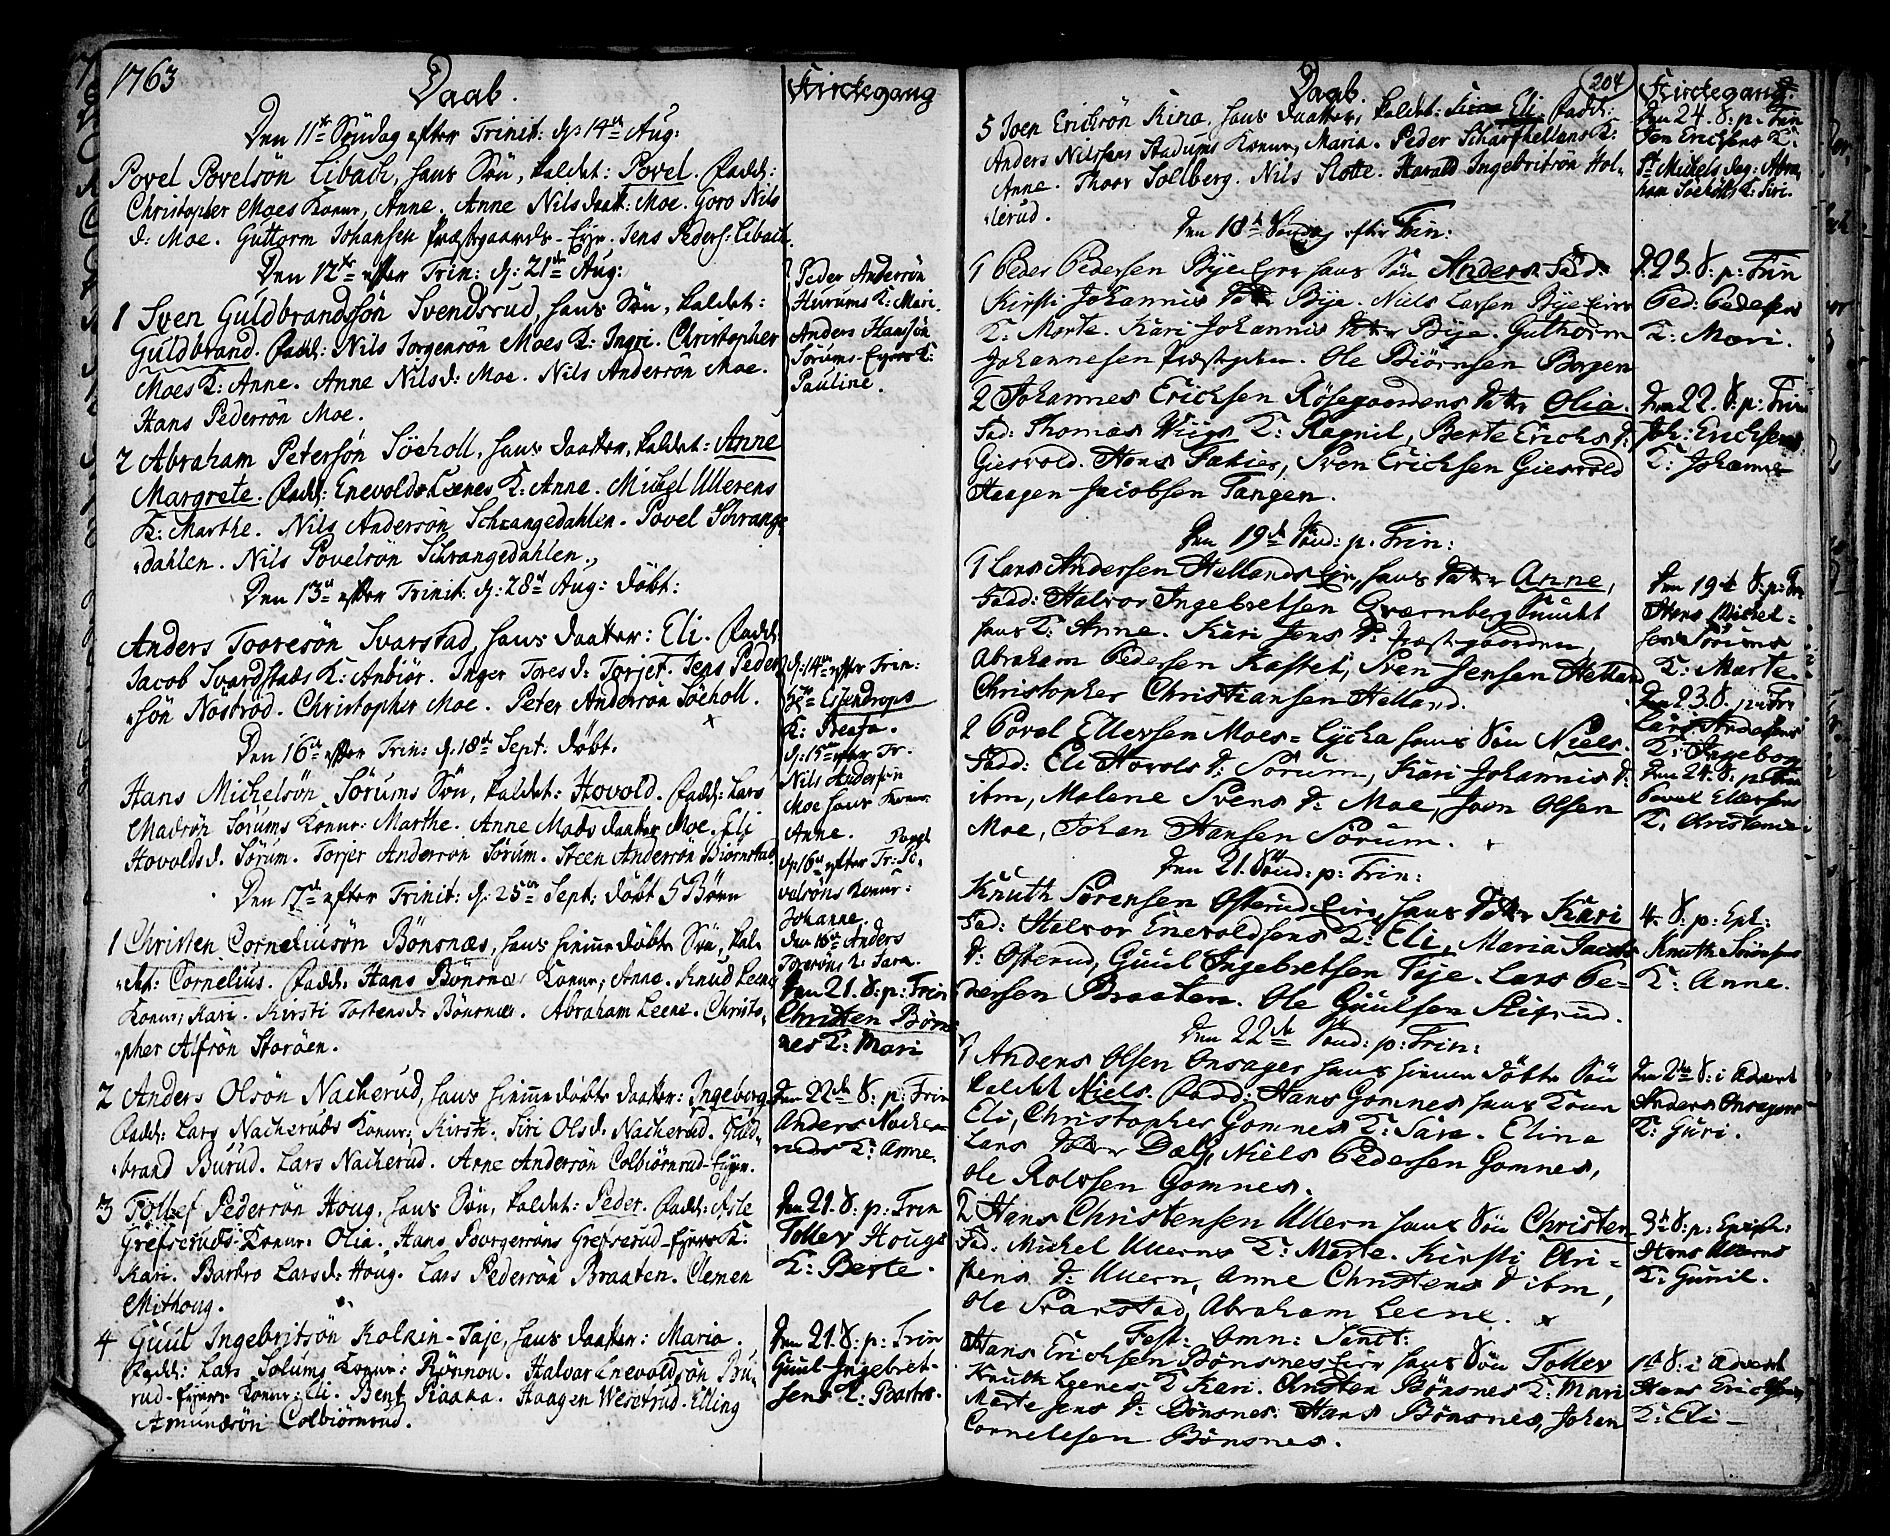 1763
Daab.
Kirckegang
Den 11te Söndag efter Trinit: d: 14de Aug:
Povel Povelsön Libach, hans Sön, kaldet: Povel. Fadd:
Christopher Moes Konur, Anne. Anne Nils daatt: Moe. Goro Nils
d: Moe. Guttorm Johansen Præstgaards-Eje. Jens Peders: Libach.
Den 12te efter Trin: d: 21de Aug:
1 Sven Guldbrandssön Svendsrud, hans Sön, kaldet:
Guldbrand. Fadd: Nils Jorgensön Moes K: Ingri. Christopher
Moes K: Anne. Anne Nilsd: Moe. Nils Andersön Moe.
Hans Pedersön Moe.
2 Abraham Petersön Söeholl, hans daatter, kaldet: Anne
Margrete. Fadd: Enevold Leenes K: Anne. Michel Ullerens
K: Marthe. Nils Andersön Schrangedahlen. Povel Schrange
dahlen. Nils Povelsön Schrangedahlen.
Den 13de efter Trinit: d: 28de Aug: döbt:
Anders Tooresön Svarstad, hans daatter: Eli. Fadd:
Jacob Svardstads K: Anbiör. Inger Tores d: Torjet. Jens Peder
sön Noströd. Christopher Moe. Peter Anderson Söeholl.
Den 16de efter Trin: d: 18de Sept: döbt.
Hans Michelsön Sörums Sön, kaldet: Hovold. Fadd: Lars
Madsön Sörums Konur: Marthe. Anne Mads daatter Moe. Eli
Hovoldsd. Sörum. Torjer Anderson Sörum. Steen Andersön Biörnstad.
Den 17de efter Trinit: d: 25de Sept: döbt 5 Börn
1 Christen Corneliusön Bönsnæs, hans hiemmedöbte Sön, kal-
det: Cornelius. Fadd: Hans Bönsnæs Konur, Anne. Knud Leene
Konur, Kari. Kirsti Tostensd: Bönsnæs. Abraham Leene. Christo-
pher Alfsön Storöen.
2 Anders Olsön Nacherud, hans hiemmedöbte daatter: Ingeborg.
Fadd: Lars Nacheruds Konur, Kirsti. Siri Olsd. Nacherud. Guld-
brand Burud. Lars Nacherud. Anne Andersön Colbiörnrud-Ejen.
3 Tollef Pedersön Houg, hans Sön, kaldet: Peder. Fadd: Asle
Grefseruds Konur: Olia. Hans Gree Grefserud-Ejers K:
Kari. Barbro Larsd: Houg. Lars Pedersön Braaten. Clemen
Mithoug.
4 Guul Ingebritsön Kolkin-Taje, hans daatter: Maria.
Fadd: Lars Solums Konur: Rönnou. Halvor Enevoldsön Bu-
rud-Ejers Konur: Eli. Bent Raaka. Haagen Wesetrud. Elling
Amundsön Colbiörnrud.
Peder Andersön
Hurums K: Mari.
Anders Hansön
Sörums-Ejers K:
Pauline.
d: 14de efter Trin:
K: Beata.
d: 15de efter Tr.
Nils Andersön
Moe hans Konur:
Anne.
d: 16de efter Tr:
velsöns Konur:
Johanne.
den 18de Anders
Toresöns K: Sara.
Den 21. S: p: Trin
Christen Böns
nes K: Mari
Den 22de S: p: Trin
Anders Nache
ruds K: Anne.
Den 21. S: p: Trin
Tollev Hougs
K: Berte.
Den 21. S: p: Trin
Guul Ingebret-
sens K: Barbr.
Daab.
204
Kirckegang
5 Joen Ericksön Kina, hans daatter, kaldet: Eli. Fadd:
Anders Nilssens Stadums Konur, Maria. Peder Scharfhellans K:
Anne. Thoor Sollberg. Nils Slotte. Harald Ingebritsön Hol-
lerud.
Den 18de Söndag efter Trin:
1 Peder Pedersen Bye Eier hans Sön Anders. Fadd:
Kirsti Johannis dater Bye. Niels Larsen Bye Eiers
K: Marte. Kari Johannis dater Bye. Guthorm
Johannesen Præstgehn. Ole Biörnsen Borgen
2 Johannes Ericksen Rösegaardens dater Olia.
Fad: Thomas Wiigs K: Ragnil, Berte Erichs d:
Giesvold. Hans Fakier, Sven Ericksen Giesvold
Haagen Jacobsen Tangen.
Den 19de Sönd: p. Trin:
1 Lars Andersen Hellands Eie, hans dater Anne,
Fadd: Halvor Ingebretsen Qværnberg
hans K: Anne. Kari Jens d: Præstgaarden,
Abraham Pedersen Kastet, Sven Jensen Helland
Christopher Christiansen Helland.
2 Povel Ellevsen Moes-Lycka hans Sön Niels.
Fadd: Eli Hovols d: Sorum, Kari Johannis d:
ibm, Malene Svens d: Moe, Joen Olsen
Moe, Johan Hansen Sorum.
Den 21. Sönd: p: Trin:
Knuth Sörensen Osterud Eie, hans dater Kari
Fad: Halvor Enevoldsens K: Eli, Maria Jacobs
d: Osterud, Guul Ingebretsen Teje. Lars Pe-
dersen Braaten. Ole Guulsen Stigrud.
Den 22de Sönd: p: Trin:
1 Anders Olsen Onsager hans hiemme döbte Sön
kaldet Niels. Fadd: Hans Gomnes hans Konur
Eli, Christopher Gomnes K: Sara. Eline
Lars dater Dæli, Niels Pedersen Gomnes,
Ole Rolvsen Gomnes.
2 Hans Christensen Ullern hans Sön Christen.
Fad: Michel Ullerns K: Marte. Kirsti Chri-
stens d: Ullern, Anne Christens d ibm,
Ole Svarstad, Abraham Leene.
Fest: Omn: Sanct:
Hans Ericksen Bönsnes Eier hans Sön Tollev
Knuth Leenes K: Kari. Christen Bönsnes K: Mari
Marte Jens d: Bönsnes. Hans Bönsnes, Johan
Cornelesen Bönsnes.
Den 24. S: p. Trin
Joen Ericksens K:
St Mickels dag. Abra
ham Söeholts K: Siri.
d. 23. S: p: Trin
Ped: Pedersens
K: Mari.
Den 22. S: p: Trin
Joh: Erichsens
K: Johanne
Den 19de S: p: Tr
Hans Michel-
sens Sörums
K: Marte.
Den 23 S. p: Tr
Lars Andersens
K: Ingeborg
Den 24. S: p: Trin
Povel Ellevsens
K: Christence
4. S: p. Eph:
Knuth Sörensens
K: Anne.
Den 2de S: i Advent
Anders Onsagers
K: Guri.
3de S: p: Epiph:
Hans Ullerns
K: Gunil.
1st S: i Advent
Hans Ericksens
K: Eli